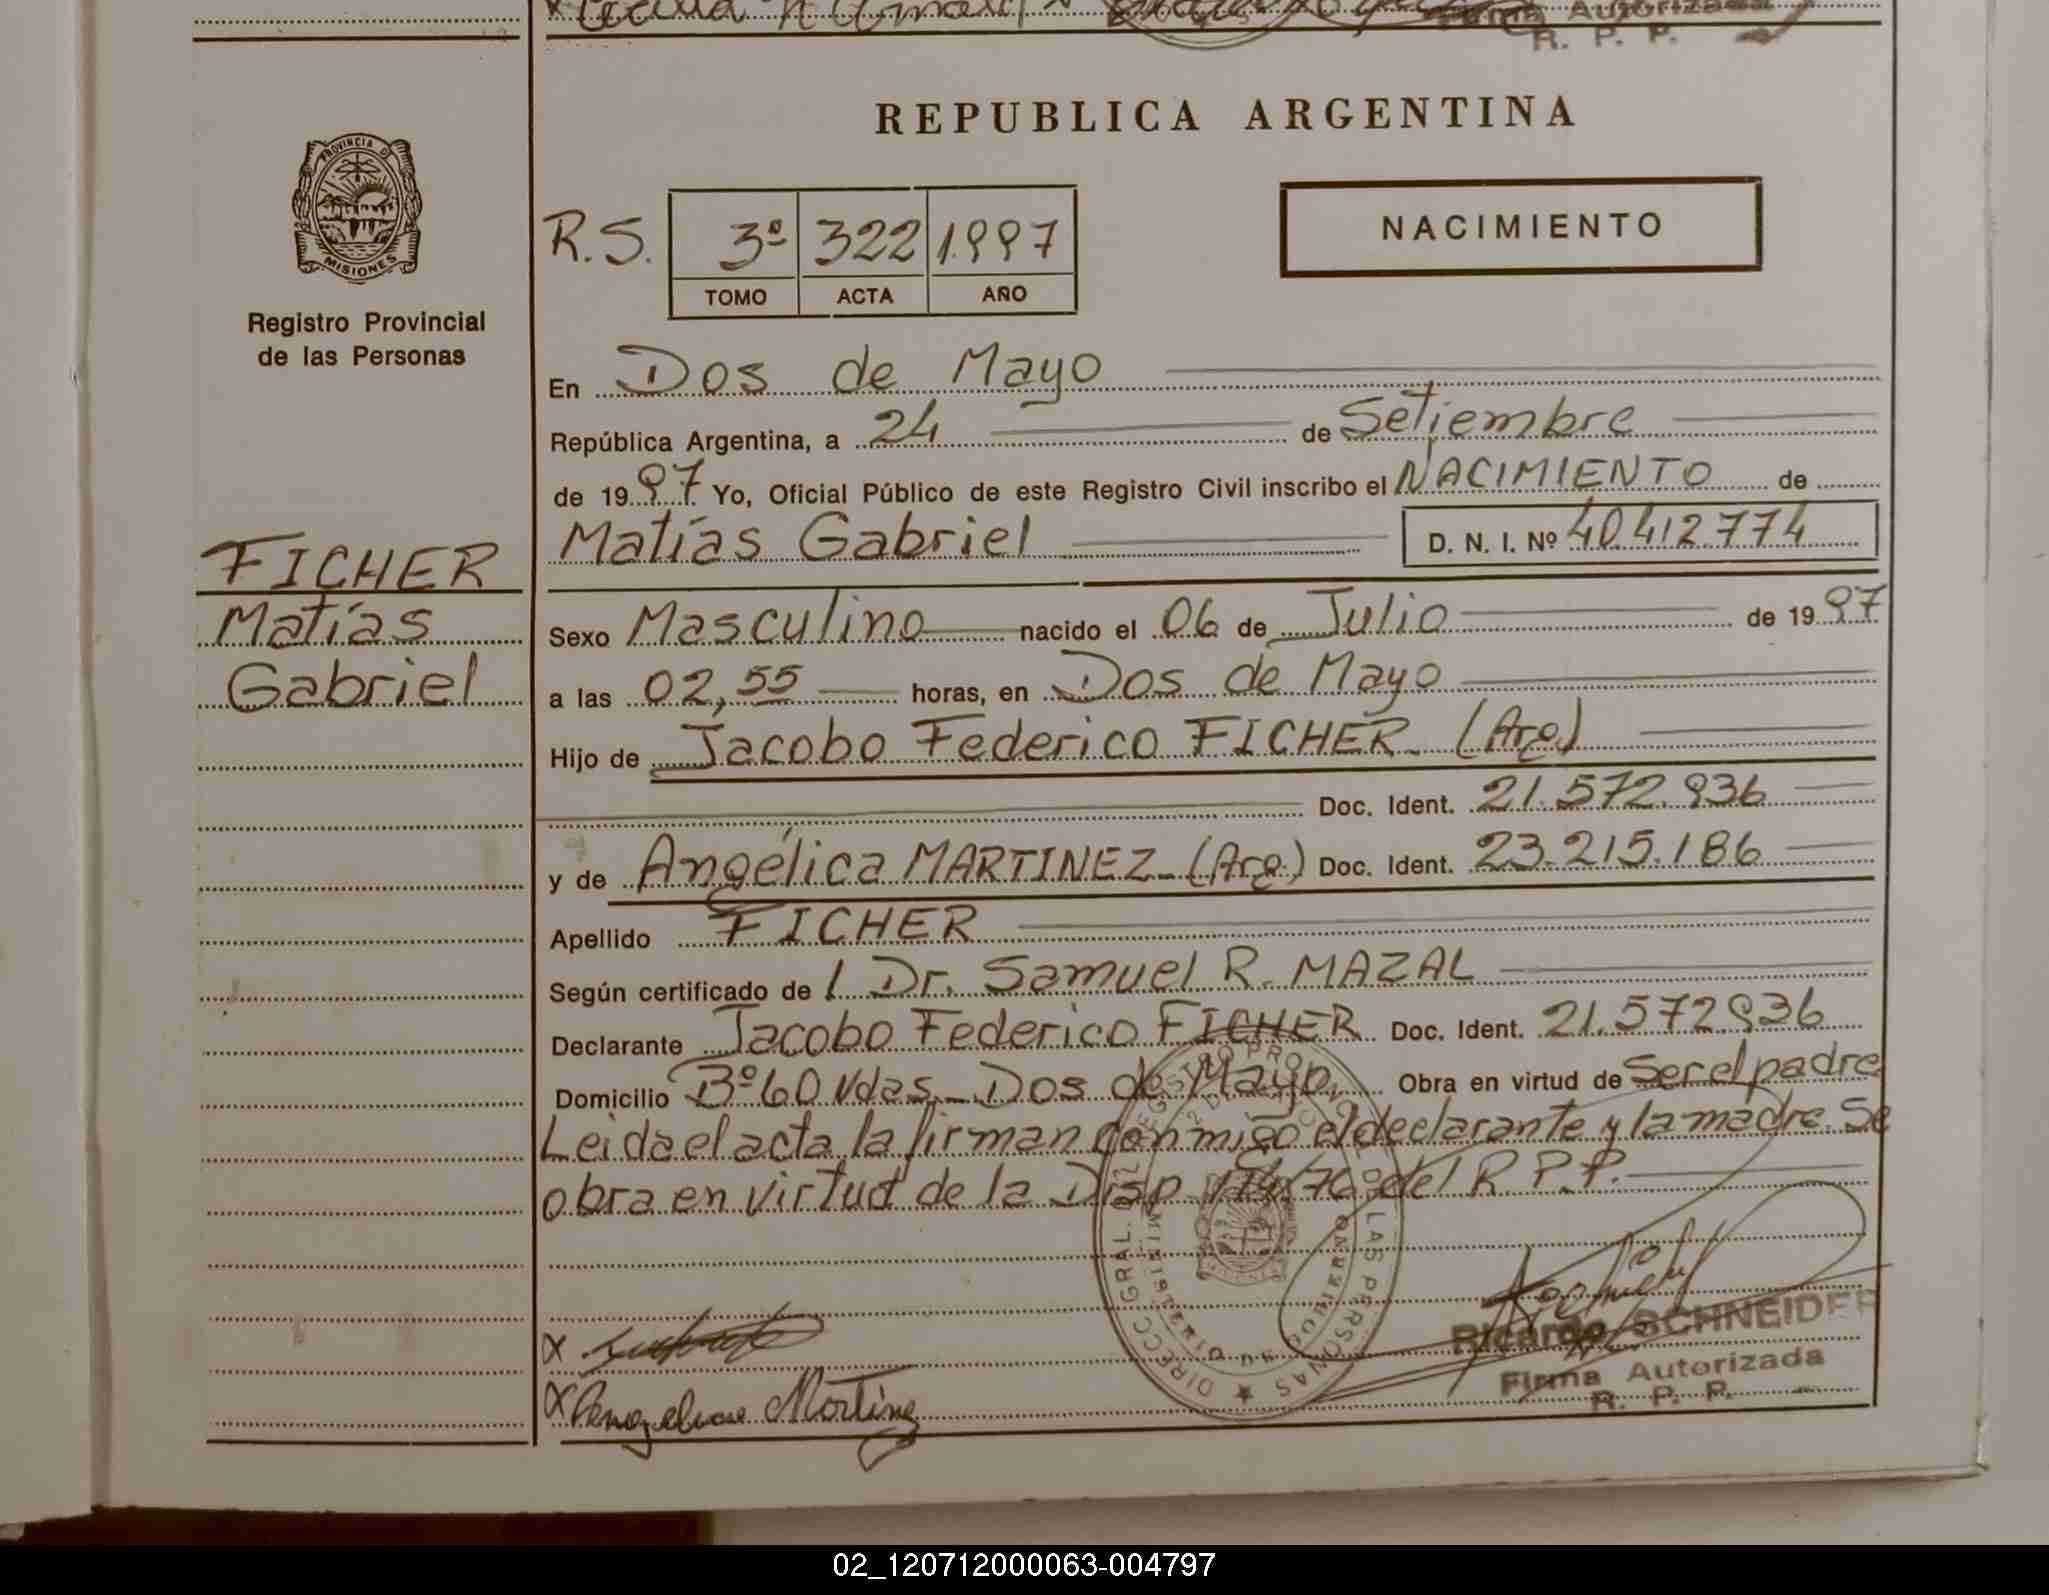 Firma Autorizada
R. P. P.
REPUBLICA ARGENTINA
PROVINCIA D
MISIONES
Registro Provincial
de las Personas
NACIMIENTO
R.S. 3º 322 1.997
TOMO ACTA AÑO
En Dos de Mayo
República Argentina, a 24 de Setiembre
de 1997 Yo, Oficial Público de este Registro Civil inscribo el NACIMIENTO de
Matías Gabriel D. N. I. Nº 40.412.774
FICHER
Matías
Gabriel
Sexo Masculino nacido el 06 de Julio de 1997
a las 02,55 horas, en Dos de Mayo
Hijo de Jacobo Federico FICHER (Arg)
Doc. Ident. 21.572.936
y de Angélica MARTINEZ (Arg.) Doc. Ident. 23.215.186
Apellido FICHER
Según certificado de l Dr. Samuel R. MAZAL
Declarante Jacobo Federico FICHER Doc. Ident. 21.572936
Domicilio Bº 60 Vdas. Dos de Mayo, Obra en virtud de ser el padre
Leida el acta la firman conmigo el declarante y la madre. Se
obra en virtud de la Disp /70 del R.P.P.
DIRECC GRAL. DEL REGISTRO PRO DE LAS PERSONAS
X
X Martinez
Ricardo SCHNEIDER
Firma Autorizada
R. P. P.
02_120712000063-004797